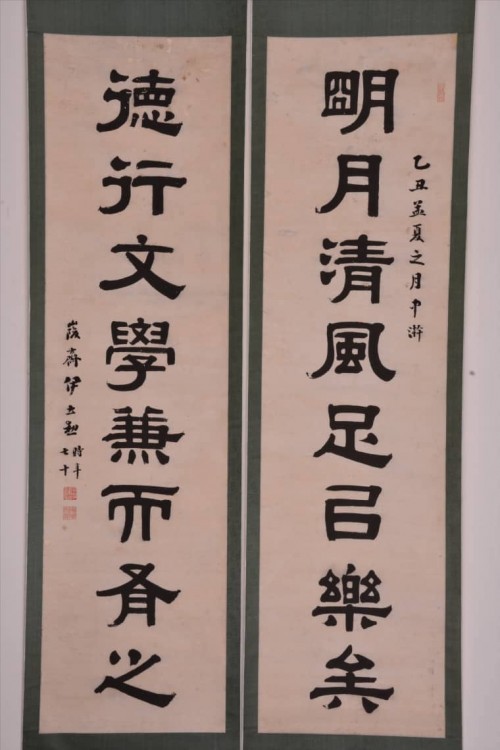 乙丑孟夏之月中澣
朙月清風足㠯樂矣
德行文學兼而有之
峻齋伊立勳
時年
七十